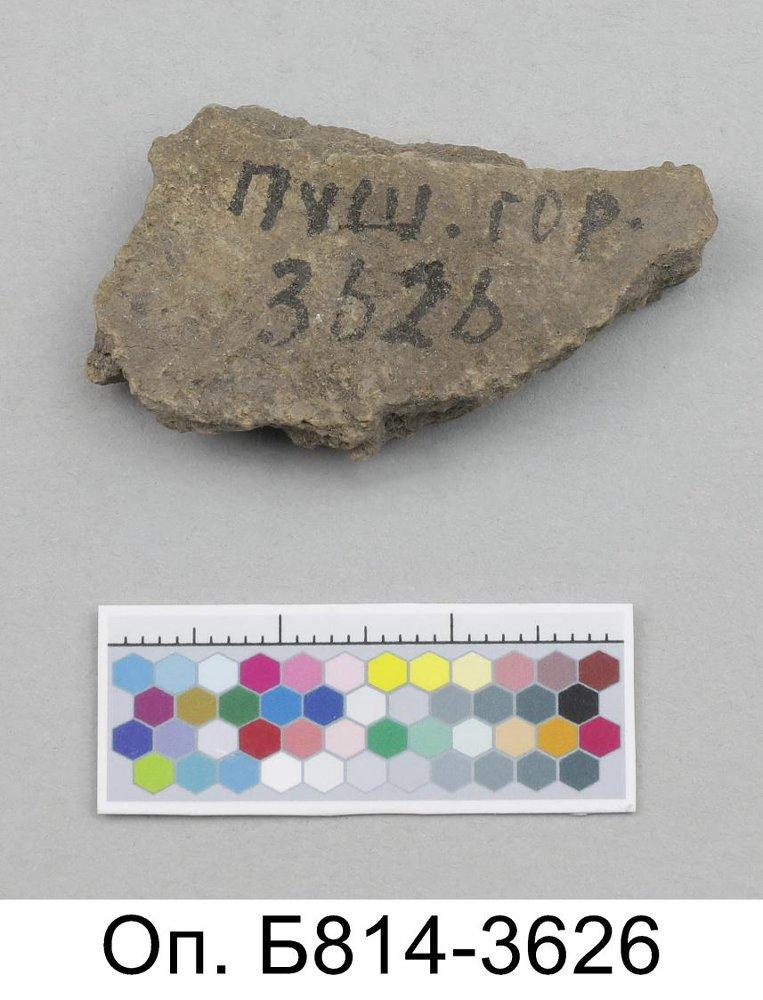 ПУШ. ГОР.
3626
Оп. Б814-3626